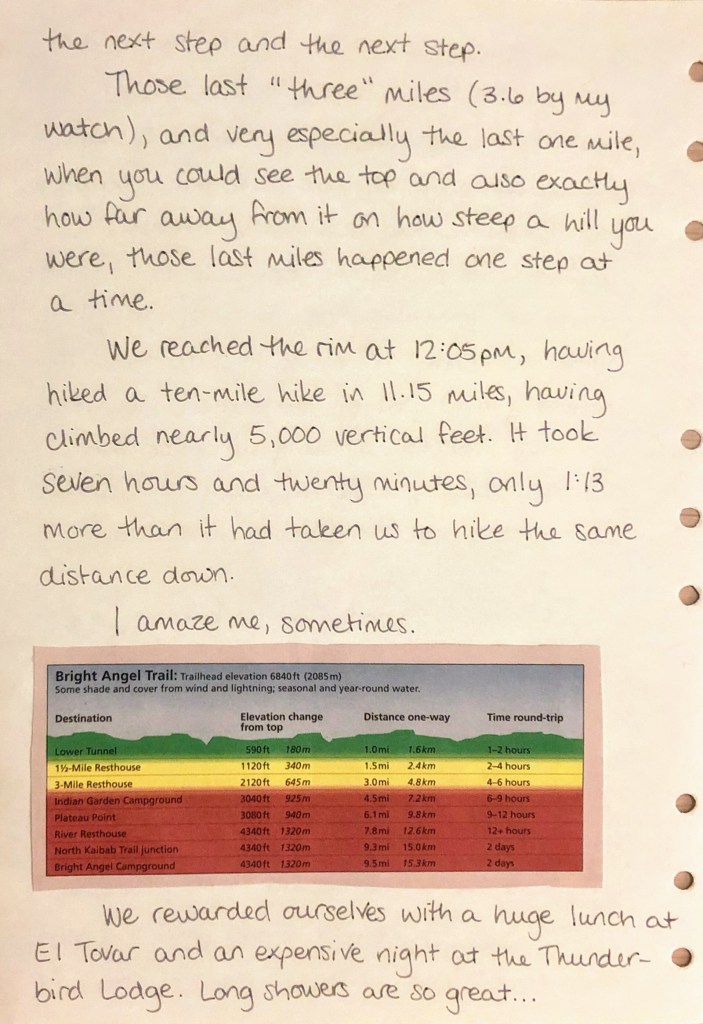 the next step and the next step.
Those last "three" miles (3.6 by my
watch), and very especially the last one mile,
when you could see the top and also exactly
how far away from it on how steep a hill you
were, those last miles happened one step at
a time.
We reached the rim at 12:05pm, having
hiked a ten-mile hike in 11.15 miles, having
climbed nearly 5,000 vertical feet. It took
seven hours and twenty minutes, only 1:13
more than it had taken us to hike the same
distance down.
I amaze me, sometimes.
Bright Angel Trail: Trailhead elevation 6840ft (2085m)
Some shade and cover from wind and lightning; seasonal and year-round water.
Destination Elevation change from top Distance one-way Time round-trip
Lower Tunnel 590ft 180m 1.0mi 1.6km 1–2 hours
1½-Mile Resthouse 1120ft 340m 1.5mi 2.4km 2–4 hours
3-Mile Resthouse 2120ft 645m 3.0mi 4.8km 4–6 hours
Indian Garden Campground 3040ft 925m 4.5mi 7.2km 6–9 hours
Plateau Point 3080ft 940m 6.1mi 9.8km 9–12 hours
River Resthouse 4340ft 1320m 7.8mi 12.6km 12+ hours
North Kaibab Trail junction 4340ft 1320m 9.3mi 15.0km 2 days
Bright Angel Campground 4340ft 1320m 9.5mi 15.3km 2 days
We rewarded ourselves with a huge lunch at
El Tovar and an expensive night at the Thunder-
bird Lodge. Long showers are so great...